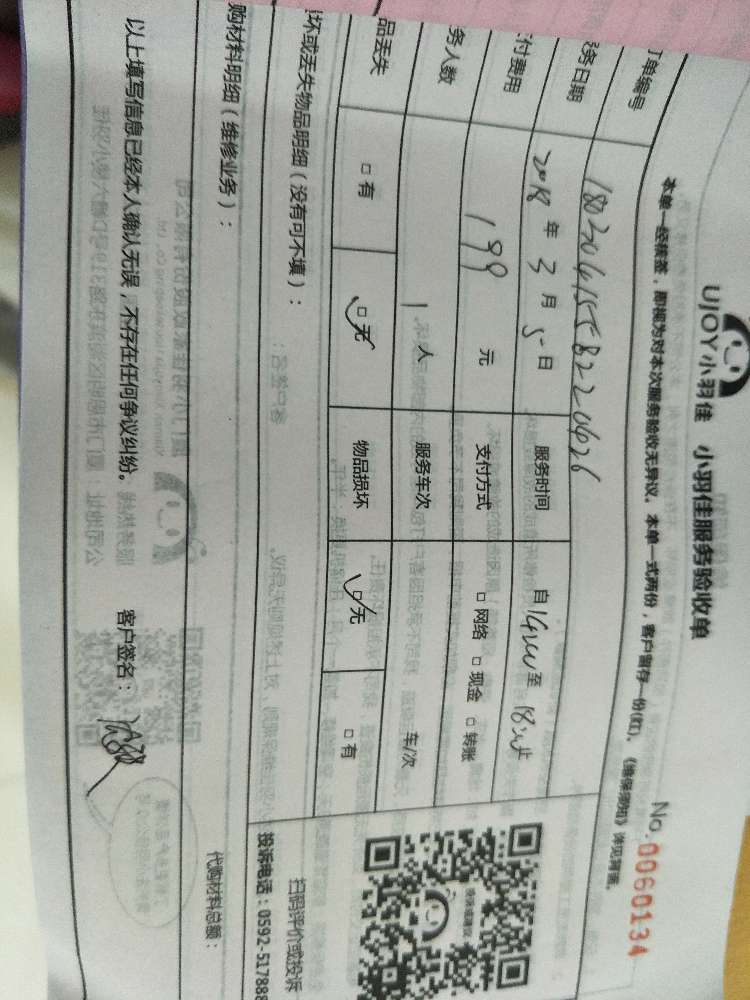 UJOY小羽佳 小羽佳服务验收单
No.0060134
本单一经核签,即视为对本次服务验收无异议。本单一式两份,客户留存一份(红)、《维保须知》详见背面。
订单编号
务日期 2018 年 3 月 5 日 服务时间 自 14:00 至 18:00 止
付费用 199 元 支付方式 □网络 □现金 □转账
务人数 1 人 服务车次 车/次
品丢失 □有 □无 物品损坏 □无 □有
坏或丢失物品明细(没有可不填):
扫码评价或投诉
投诉电话:0592-517888
购材料明细(维修业务):
代购材料总额:
以上填写信息已经本人确认无误,不存在任何争议纠纷。 客户签名: